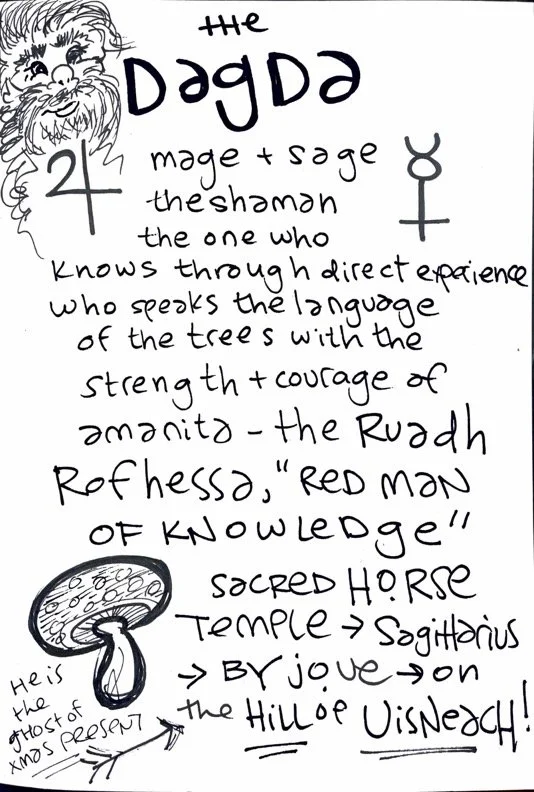 the
DagDa
mage + sage
the shaman
the one who
knows through direct experience
who speaks the language
of the trees with the
strength + courage of
amanita - the Ruadh
Rofhessa, "RED MAN
OF KNOWLEDge"
SACRED HORSE
TEMPLE → Sagittarius
→ BY JOVE → on
the HILL OF UISNEACH!
He is
the
gHost of
xmas PRESENT